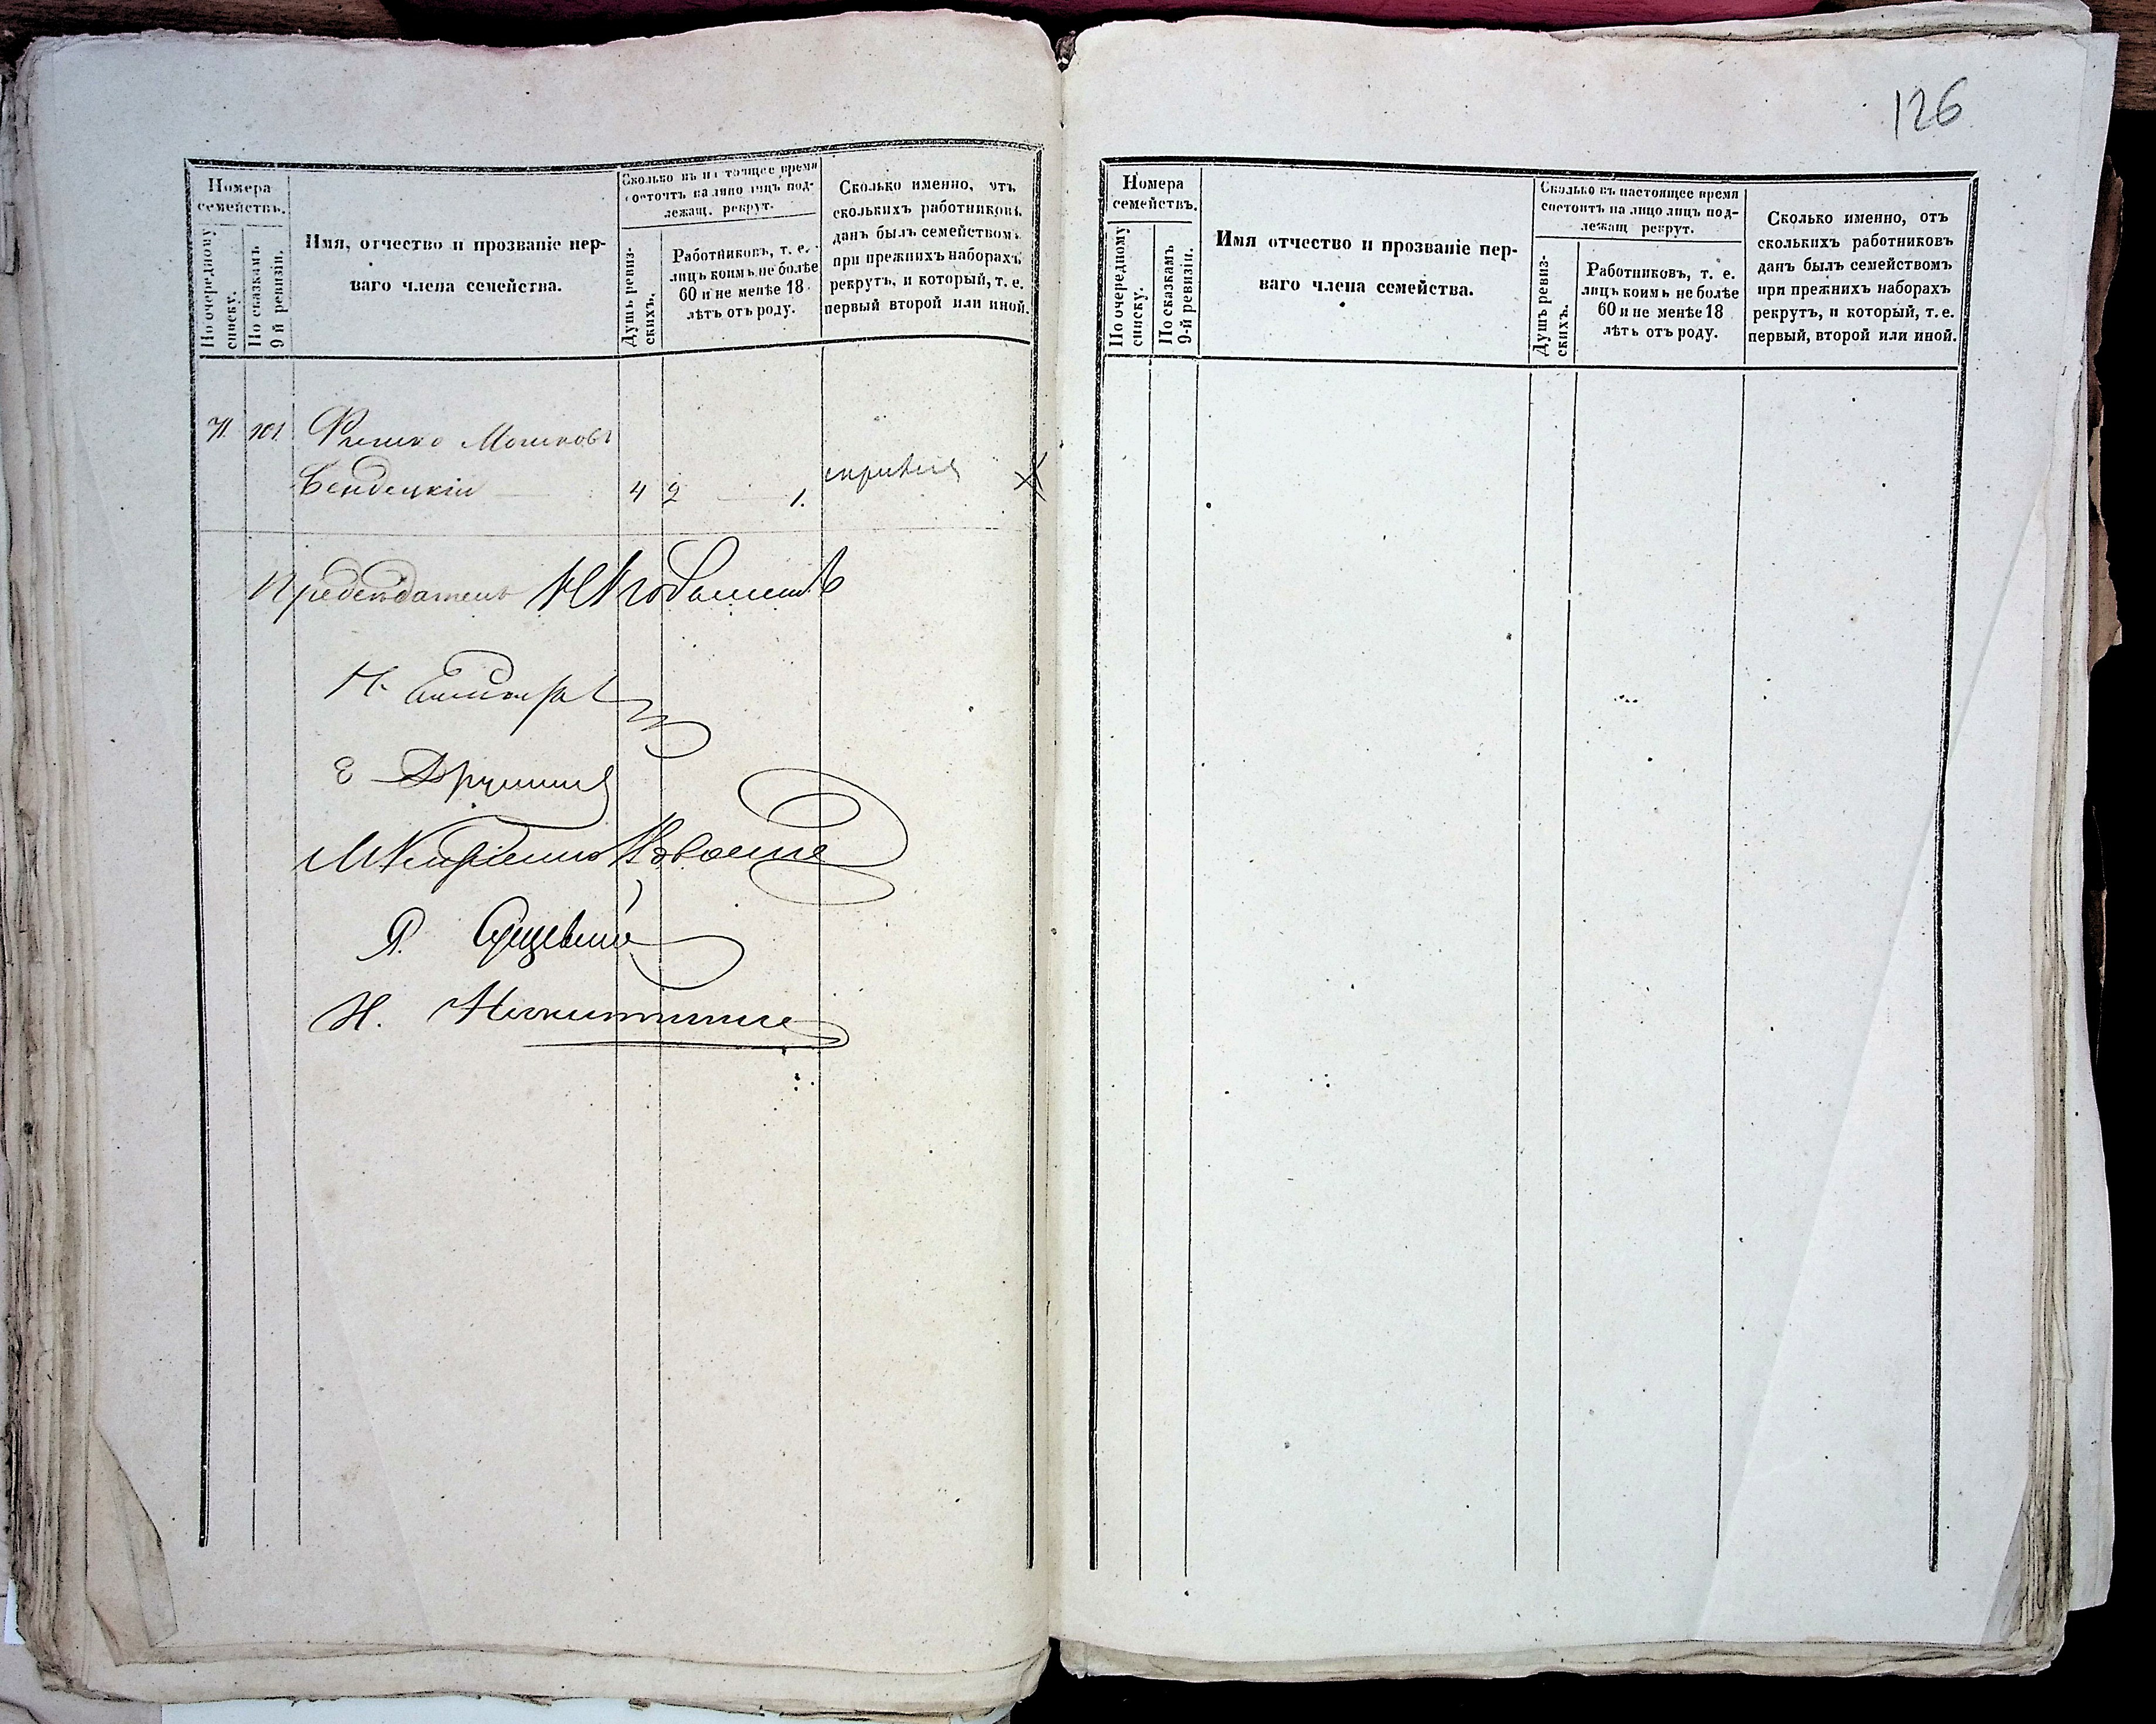 Номера
семействъ.
По очередному
списку.
По сказкамъ
9-й ревизіи.
Имя, отчество и прозваніе пер-
ваго члена семейства.
Сколько въ настоящее время
состоитъ на лицо лицъ под-
лежащ. рекрут.
Душъ ревиз-
скихъ.
Работниковъ, т. е.
лицъ коимъ не болѣе
60 и не менѣе 18
лѣтъ отъ роду.
Сколько именно, отъ
сколькихъ работниковъ
данъ былъ семействомъ
при прежнихъ наборахъ
рекрутъ, и который, т. е.
первый второй или иной.
71. 101. Фишко Мошковъ
Бендецкій 4 2 1.
Предсѣдатель
Е Дружинин
Я. Сущевский
Н. Никитинъ
126
Номера
семействъ.
По очередному
списку.
По сказкамъ
9-й ревизіи.
Имя отчество и прозваніе пер-
ваго члена семейства.
Сколько въ настоящее время
состоитъ на лицо лицъ под-
лежащ рекрут.
Душъ ревиз-
скихъ.
Работниковъ, т. е.
лицъ коимъ не болѣе
60 и не менѣе 18
лѣтъ отъ роду.
Сколько именно, отъ
сколькихъ работниковъ
данъ былъ семействомъ
при прежнихъ наборахъ
рекрутъ, и который, т. е.
первый, второй или иной.